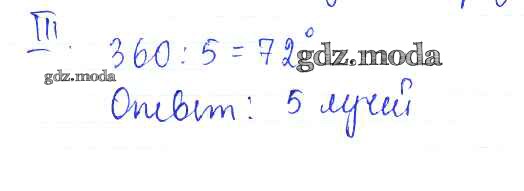 III.
360 : 5 = 72°
gdz.moda
gdz.moda
Ответ: 5 лучей